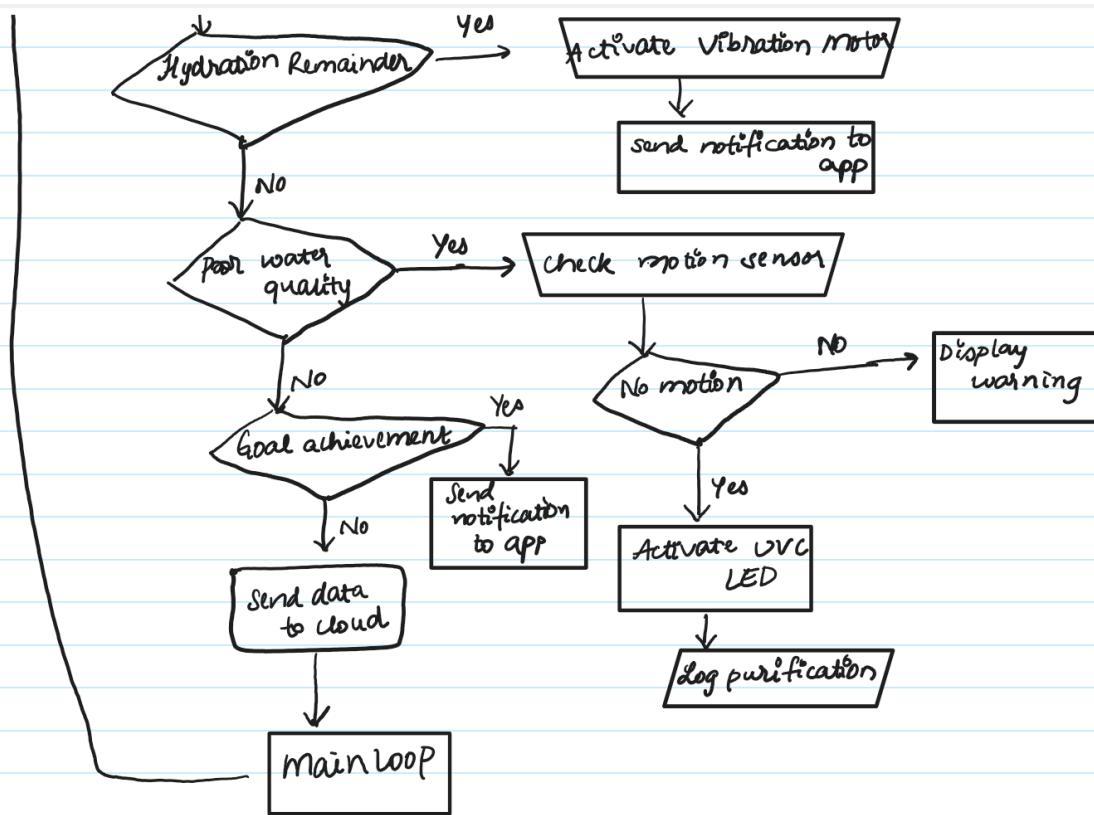 Yes
Hydration Remainder
Activate Vibration Motor
send notification to
app
No
Poor water
quality
Yes
check motion sensor
No motion
NO
Display
warning
No
Goal achievement
Yes
Send
notification
to app
Yes
Activate UVC
LED
No
Send data
to cloud
Log purification
main loop